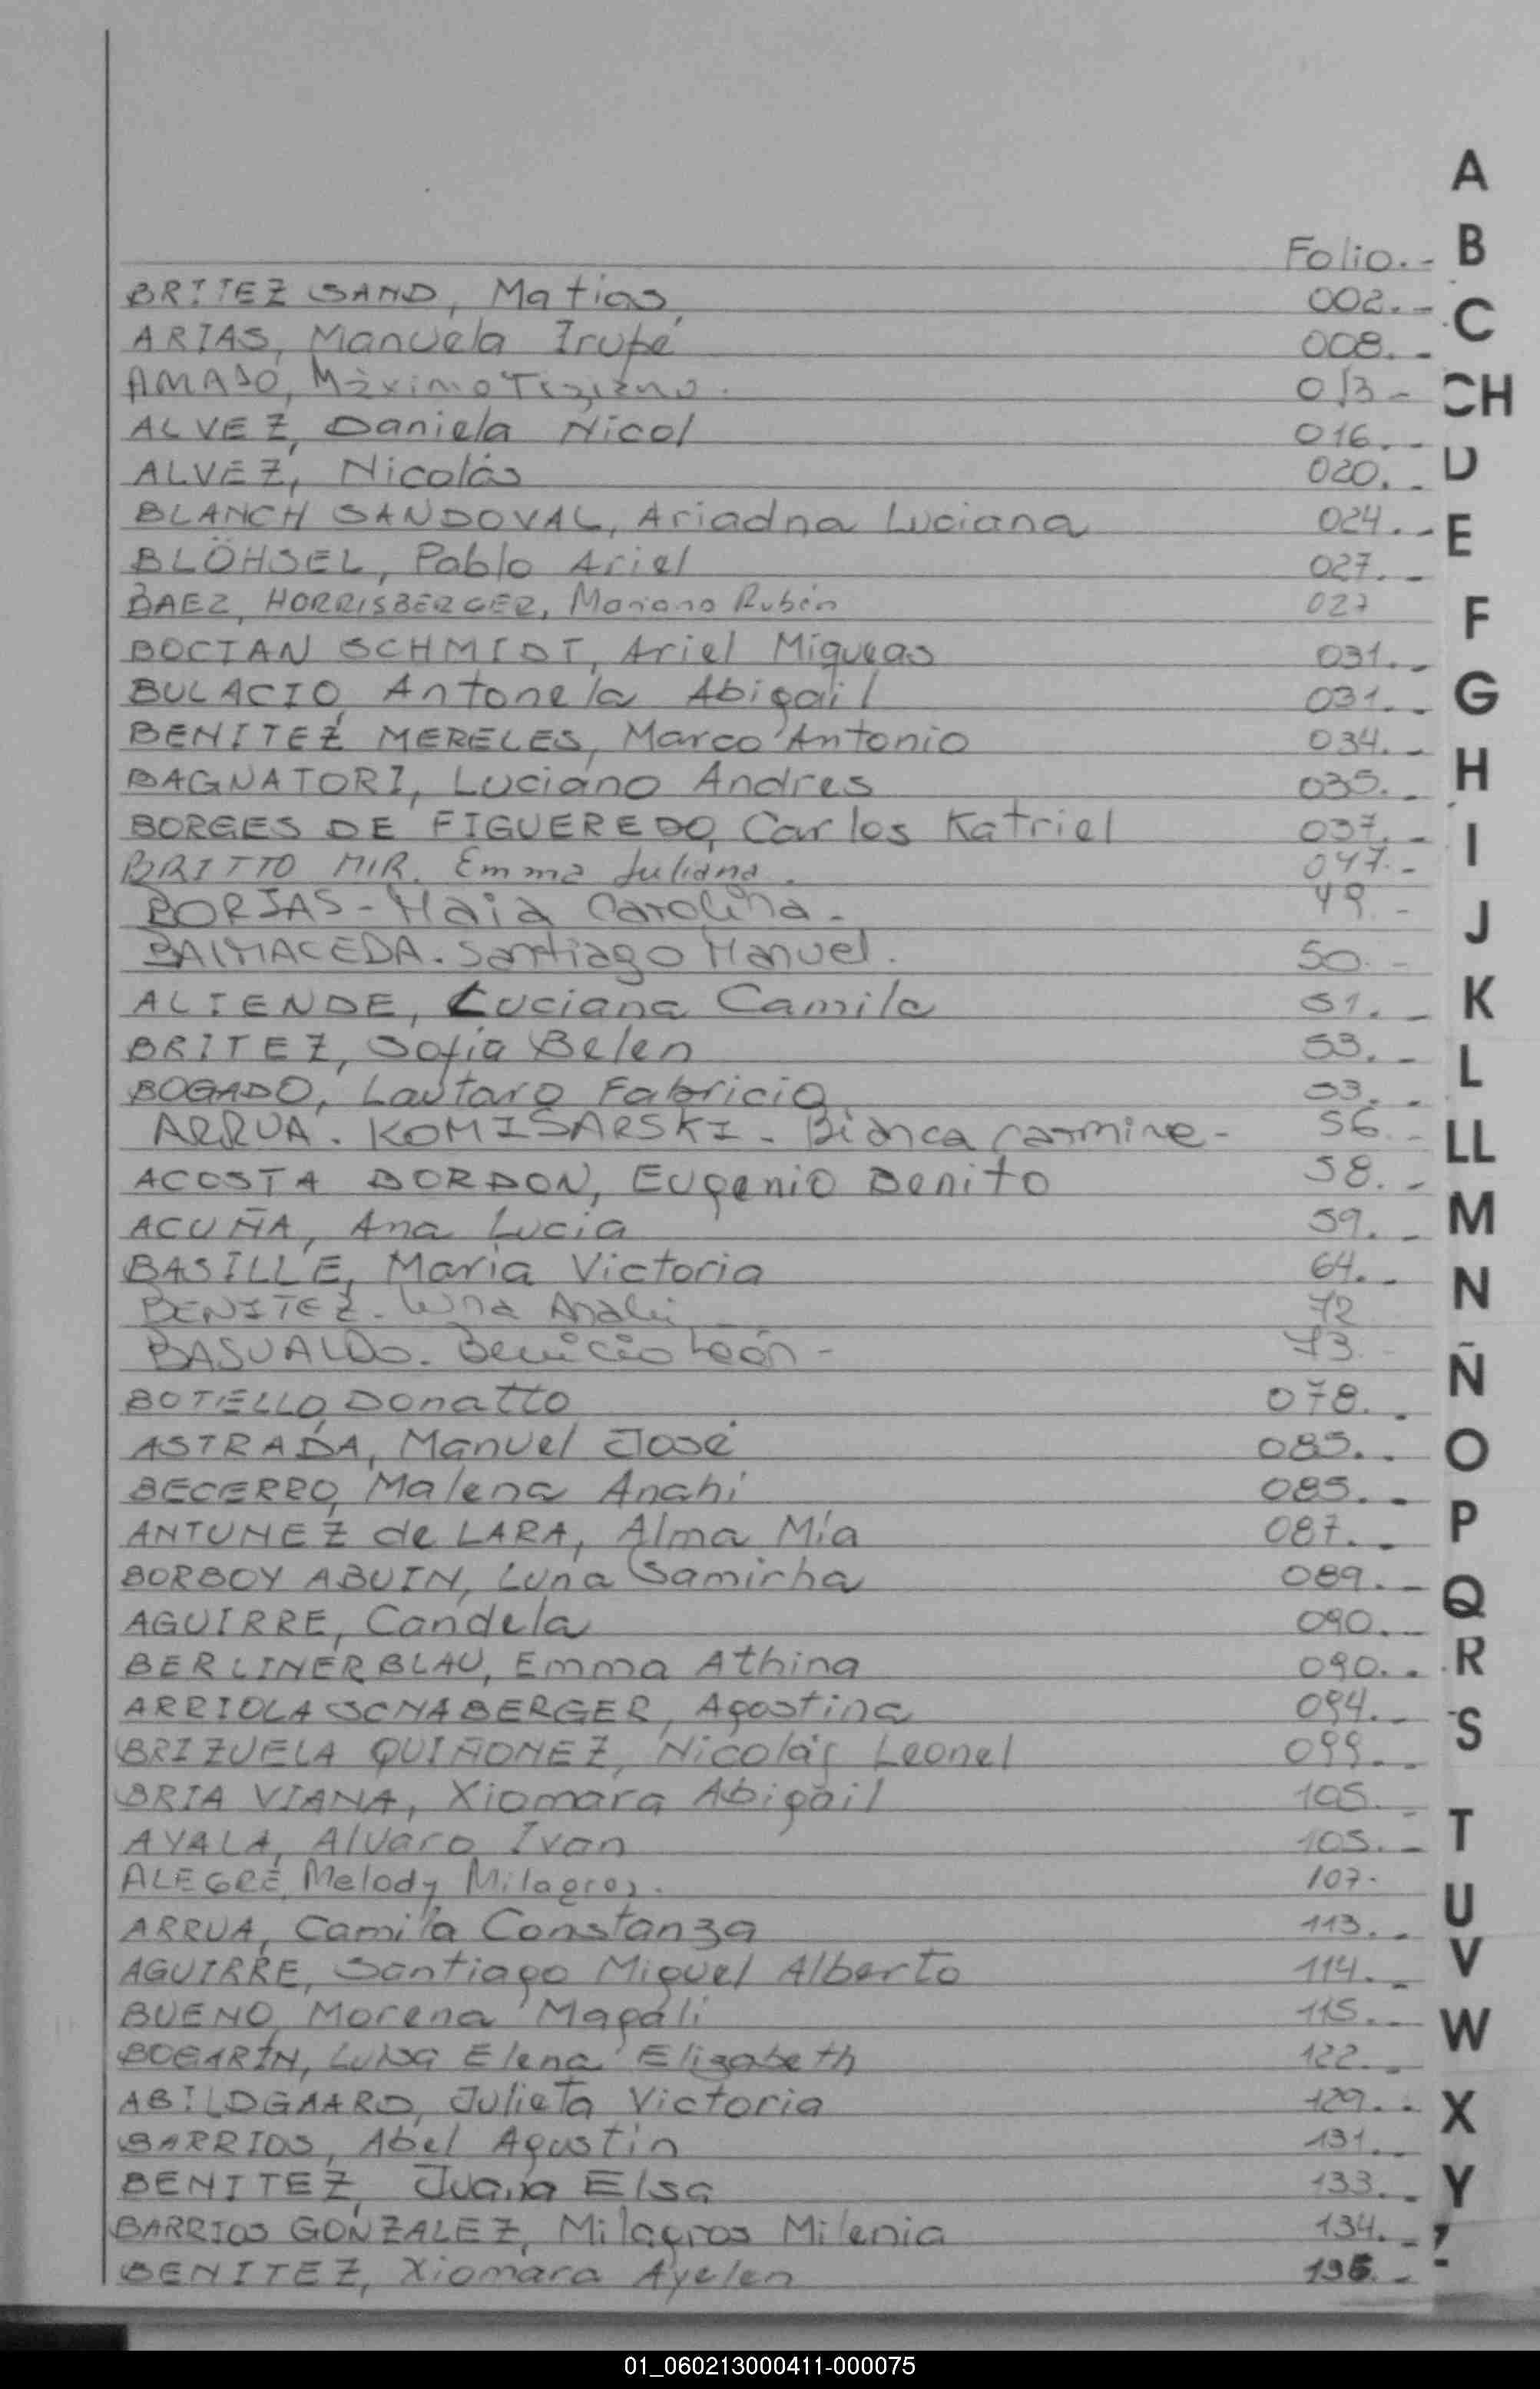 Folio.-
BRITEZ SAND, Matias 002.-
ARIAS, Manuela Irupé 008.-
AMADO, Máximo Tiziano. 013-
ALVEZ, Daniela Nicol 016.-
ALVEZ, Nicolás 020.-
BLANCH SANDOVAL, Ariadna Luciana 024.-
BLÖHSEL, Pablo Ariel 027.-
BAEZ, HORRISBERGER, Mariano Rubén 027
BOCIAN SCHMIDT, Ariel Miqueas 031.-
BULACIO, Antonela Abigail 031.-
BENITEZ MERELES, Marco Antonio 034.-
BAGNATORI, Luciano Andres 035.-
BORGES DE FIGUEREDO, Carlos Katriel 037.-
BRITTO MIR. Emma Juliana. 047.-
BORJAS - Maia Carolina. 49 -
BALMACEDA. Santiago Manuel. 50 -
ALIENDE, Luciana Camila 51.-
BRITEZ, Sofia Belen 53.-
BOGADO, Lautaro Fabricio 53.-
ARRUA. KOMISARSKI - Bianca Carmine- 56.-
ACOSTA BORDON, Eugenio Benito 58.-
ACUÑA, Ana Lucia 59.-
BASILLE, Maria Victoria 64.-
BENITEZ - Luna 72
BASUALDO. Benicio León - 73 -
BOTELLO, Donatto 078.-
ASTRADA, Manuel José 085.-
BECERRO, Malena Anahi 085.-
ANTUNEZ de LARA, Alma Mía 087.-
BORBOY ABUIN, Luna Samirha 089.-
AGUIRRE, Candela 090.-
BERLINERBLAU, Emma Athina 090.-
ARRIOLA SCNABERGER, Agostina 094.-
BRIZUELA QUIÑONEZ, Nicolás Leonel 099.-
BRIA VIANA, Xiomara Abigail 105.-
AYALA, Alvaro Ivan 105.-
ALEGRE, Melody Milagros. 107-
ARRUA, Camila Constanza 113.-
AGUIRRE, Santiago Miguel Alberto 114.-
BUENO, Morena Magali 115.-
BOGARÍN, Luisa Elena Elizabeth 122.-
ABILDGAARD, Julieta Victoria 129.-
BARRIOS, Abel Agustin 131.-
BENITEZ, Juana Elsa 133.-
BARRIOS GONZALEZ, Milagros Milenia 134.-
BENITEZ, Xiomara Ayelen 135.-
A
B
C
CH
D
E
F
G
H
I
J
K
L
LL
M
N
Ñ
O
P
Q
R
S
T
U
V
W
X
Y
01_060213000411-000075